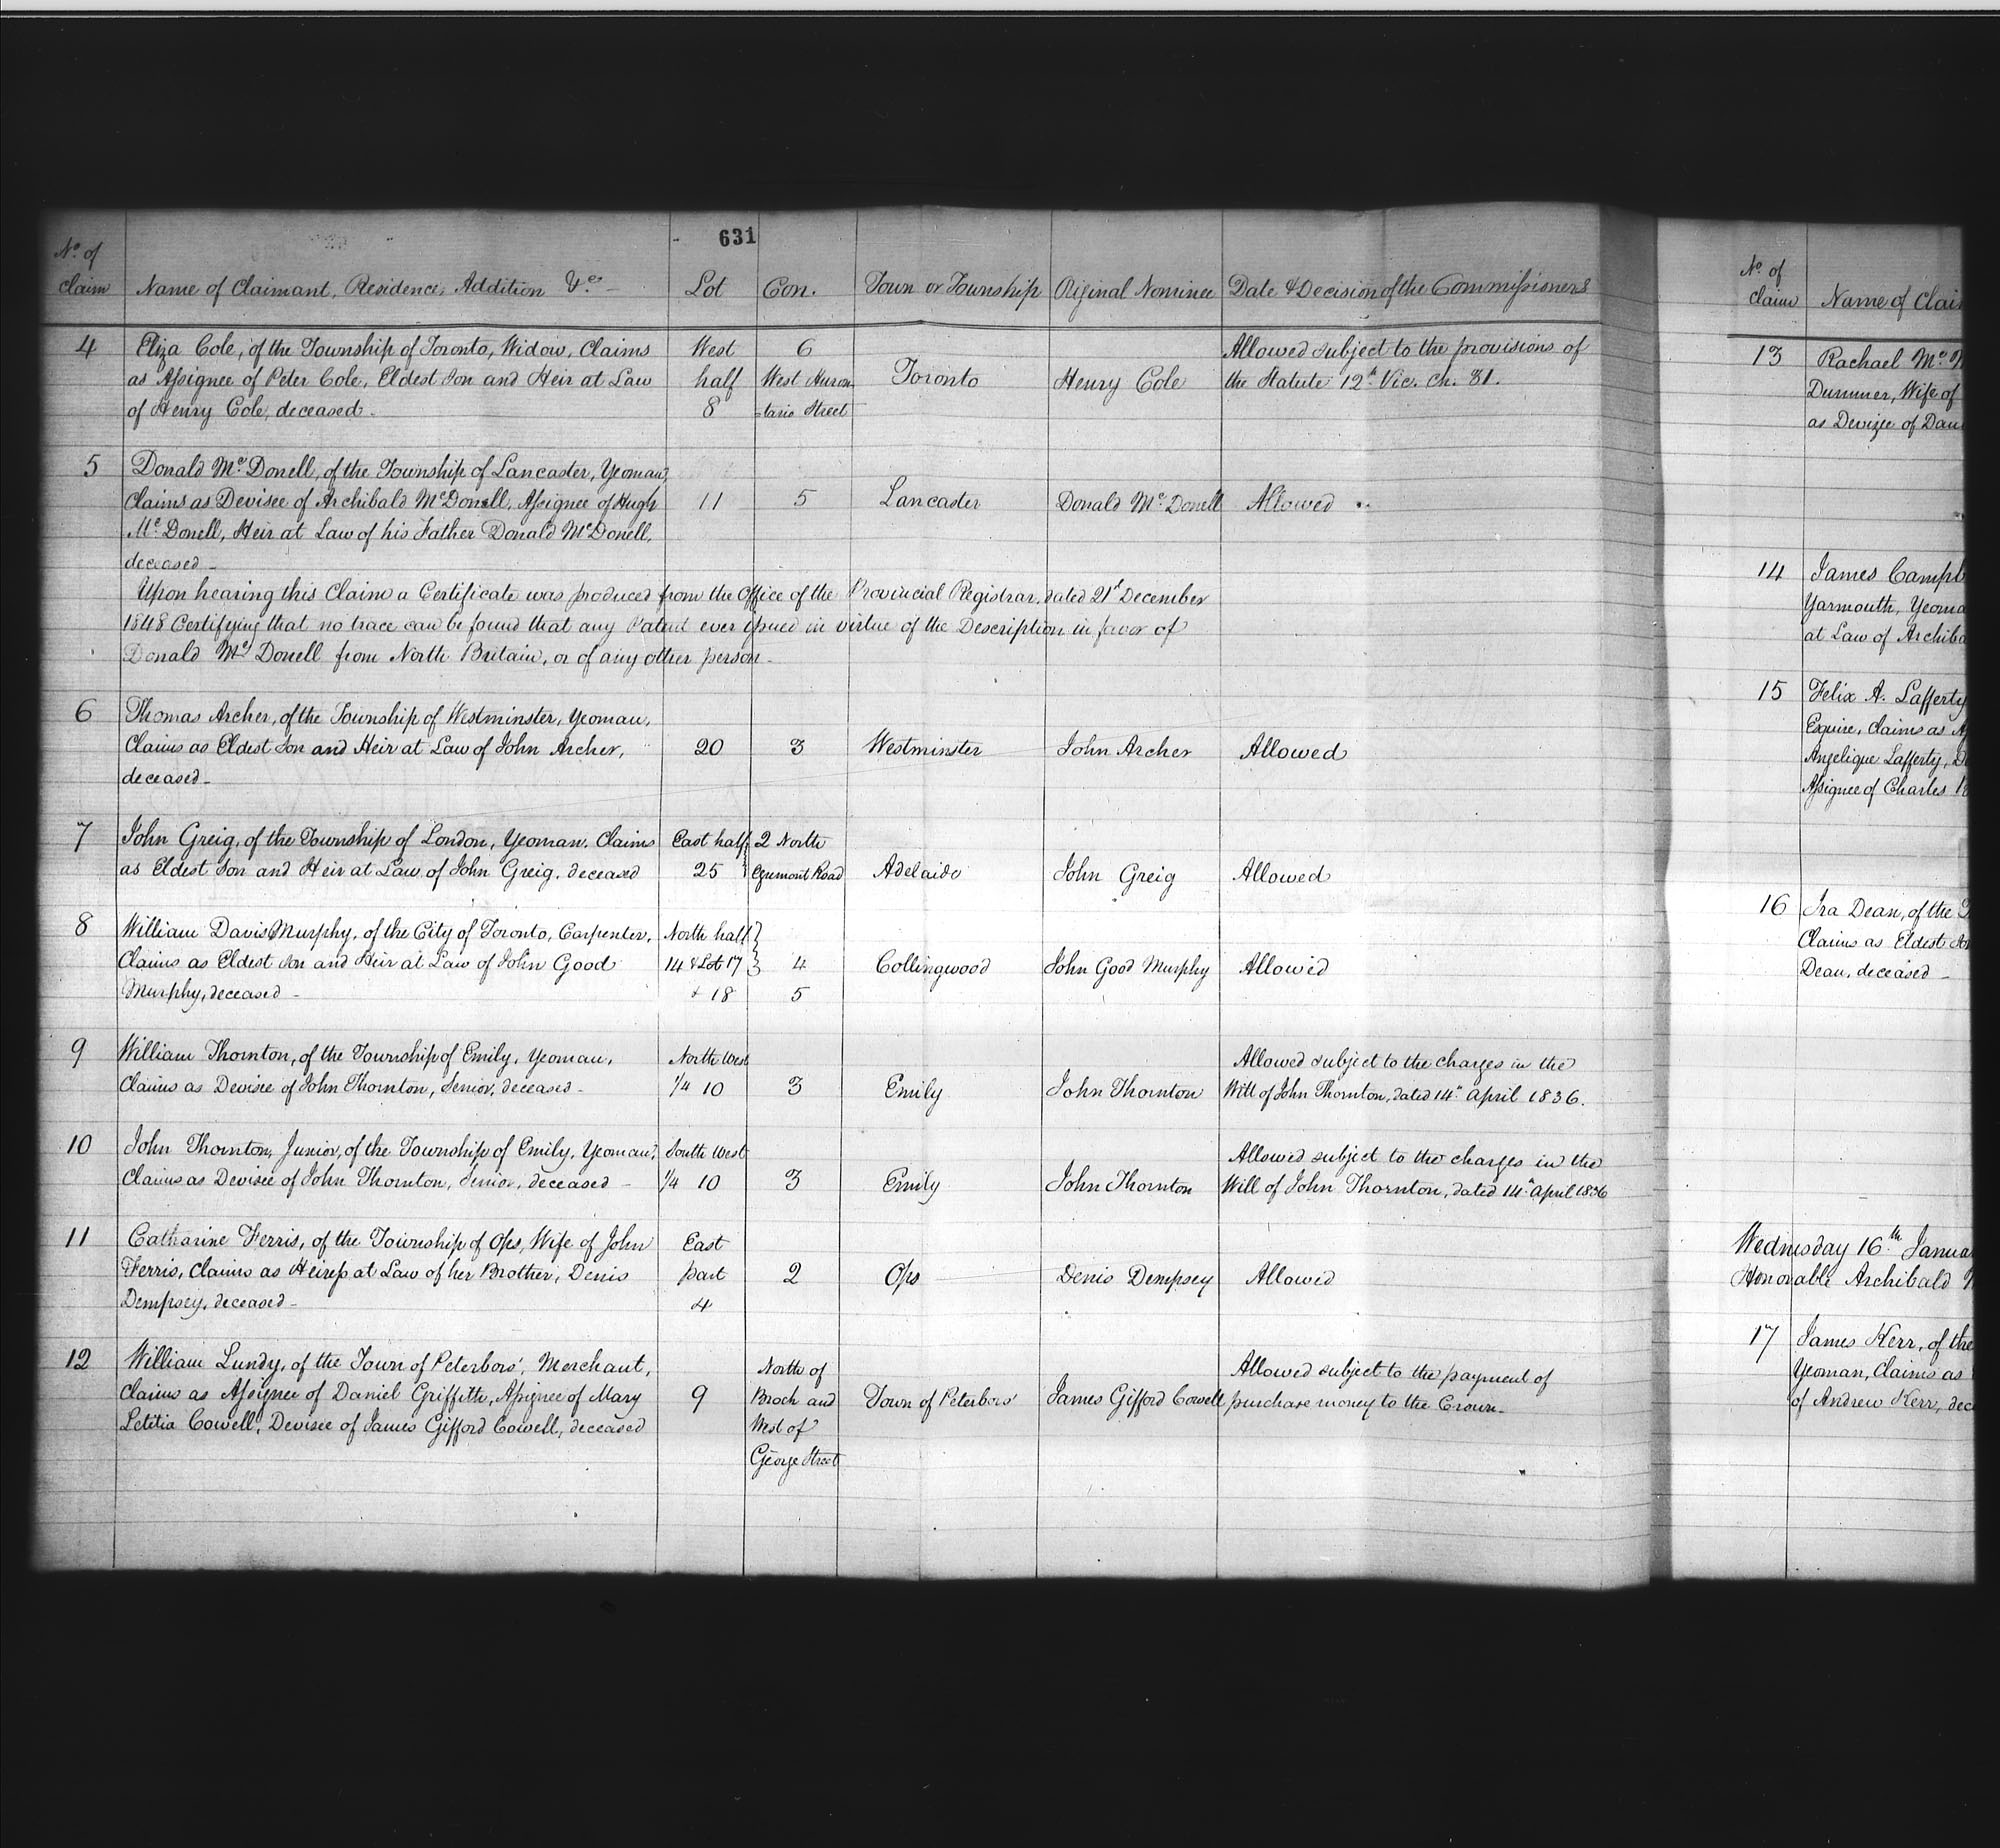 631
No. of claim | Name of Claimant, Residence, Addition &c. | Lot | Con. | Town or Township | Original Nominee | Date & Decision of the Commissioners
4 | Eliza Cole, of the Township of Toronto, Widow, Claims | West | 6 | Allowed subject to the provisions of
as Assignee of Peter Cole, Eldest Son and Heir at Law | half | West Huron- | Toronto | Henry Cole | the Statute 12th Vic. ch. 81.
of Henry Cole, deceased - | 8 | -tario Street
5 | Donald McDonell, of the Township of Lancaster, Yeoman,
Claims as Devisee of Archibald McDonell, Assignee of Hugh | 11 | 5 | Lancaster | Donald McDonell | Allowed
McDonell, Heir at Law of his Father Donald McDonell,
deceased -
Upon hearing this Claim a Certificate was produced from the Office of the Provincial Registrar, dated 21st December
1848 Certifying that no trace can be found that any Patent ever issued in virtue of the Description in favor of
Donald McDonell from North Britain, or of any other person -
6 | Thomas Archer, of the Township of Westminster, Yeoman,
Claims as Eldest Son and Heir at Law of John Archer, | 20 | 3 | Westminster | John Archer | Allowed
deceased -
7 | John Greig, of the Township of London, Yeoman, Claims | East half | 2 North
as Eldest Son and Heir at Law of John Greig, deceased | 25 | Egremont Road | Adelaide | John Greig | Allowed
8 | William Davis Murphy, of the City of Toronto, Carpenter, | North half
Claims as Eldest Son and Heir at Law of John Good | 14 & Lot 17 | 4 | Collingwood | John Good Murphy | Allowed
Murphy, deceased - | + 18 | 5
9 | William Thornton, of the Township of Emily, Yeoman, | North West | Allowed subject to the charges in the
Claims as Devisee of John Thornton, Senior, deceased - | 1/4 10 | 3 | Emily | John Thornton | Will of John Thornton, dated 14th April 1836.
10 | John Thornton, Junior, of the Township of Emily, Yeoman, | South West | Allowed subject to the charges in the
Claims as Devisee of John Thornton, Senior, deceased - | 1/4 10 | 3 | Emily | John Thornton | Will of John Thornton, dated 14th April 1836
11 | Catharine Ferris, of the Township of Ops, Wife of John | East
Ferris, Claims as Heiress at Law of her Brother, Denis | part | 2 | Ops | Denis Dempsey | Allowed
Dempsey, deceased - | 4
12 | William Lundy, of the Town of Peterboro', Merchant, | North of | Allowed subject to the payment of
Claims as Assignee of Daniel Griffith, Assignee of Mary | 9 | Brock and | Town of Peterboro' | James Gifford Cowell | purchase money to the Crown -
Letitia Cowell, Devisee of James Gifford Cowell, deceased | West of
George Street
No. of claim | Name of Clai
13 | Rachael Mc
Dummer, Wife of
as Devizee of Dan
14 | James Campb
Yarmouth, Yeoma
at Law of Archiba
15 | Felix A. Lafferty
Esquire, Claims as
Angelique Lafferty,
Assignee of Charles
16 | Ira Dean, of the
Claims as Eldest
Dean, deceased -
Wednesday 16th Janua
Honorable Archibald
17 | James Kerr, of the
Yeoman, Claims as
of Andrew Kerr, dec